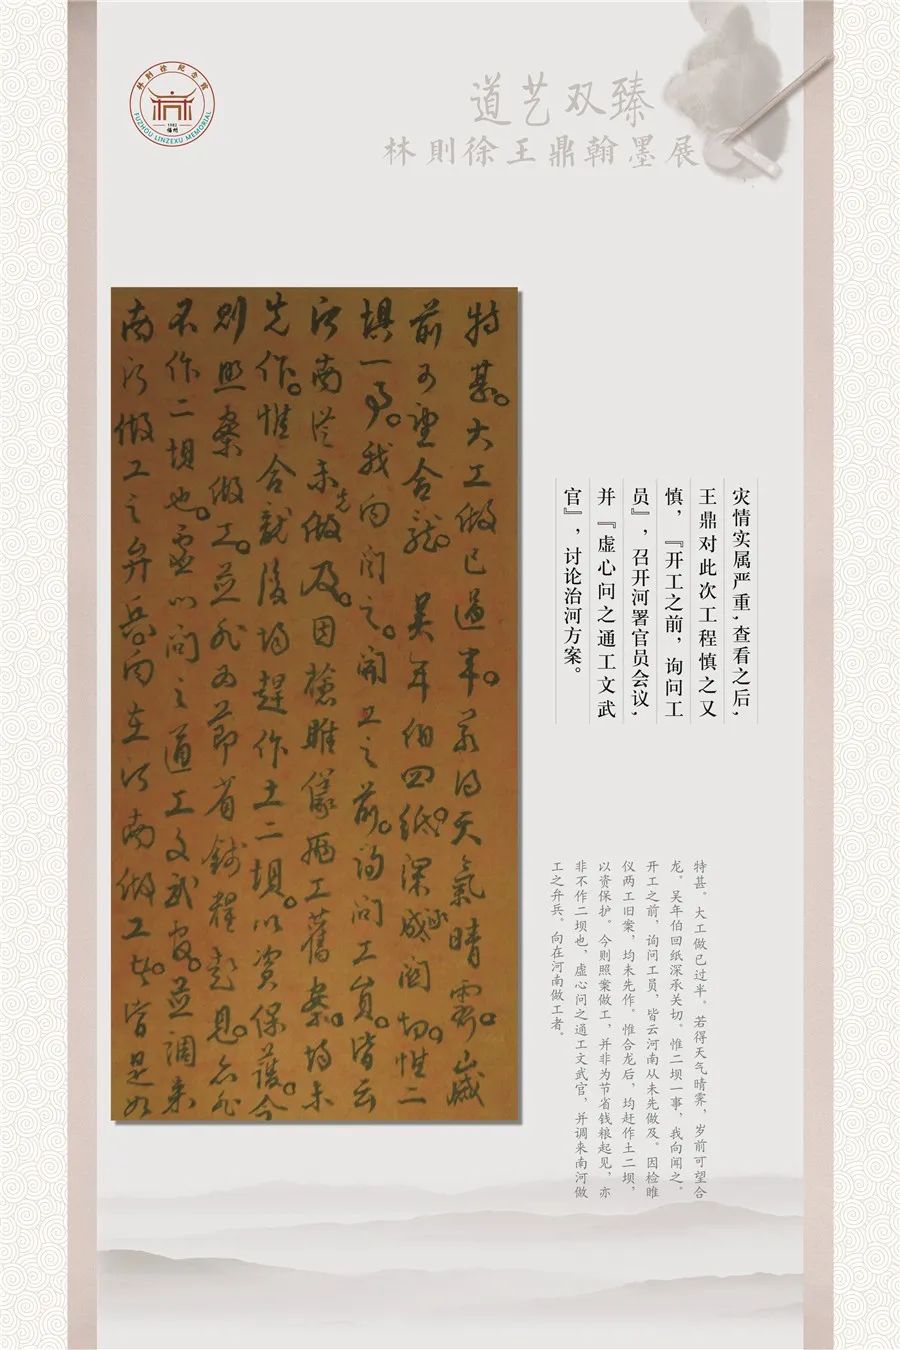 林則徐紀念館
1982
福州
FUZHOU LINZEXU MEMORIAL
道艺双臻
林則徐王鼎翰墨展
特甚。大工做已過半。若得天氣晴霽。歲
前可望合龍。吳年伯回紙。深承關切。惟二
壩一事。我向聞之。開工之前。詢問工員。皆云
河南從未先做及。因檢睢儀兩工舊案。均未
先作。惟合龍後均趕作土二壩。以資保護。今
則照案做工。並非為節省錢糧起見。亦非
不作二壩也。虛心問之通工文武官。並調來
南河做工之弁兵向在河南做工者。皆是如
灾情实属严重,查看之后,
王鼎对此次工程慎之又
慎,『开工之前,询问工
员』,召开河署官员会议,
并『虚心问之通工文武
官』,讨论治河方案。
特甚。大工做已过半。若得天气晴霁,岁前可望合
龙。吴年伯回纸深承关切。惟二坝一事,我向闻之。
开工之前,询问工员,皆云河南从未先做及。因检睢
仪两工旧案,均未先作。惟合龙后,均赶作土二坝,
以资保护。今则照案做工,并非为节省钱粮起见,亦
非不作二坝也,虚心问之通工文武官,并调来南河做
工之弁兵。向在河南做工者。